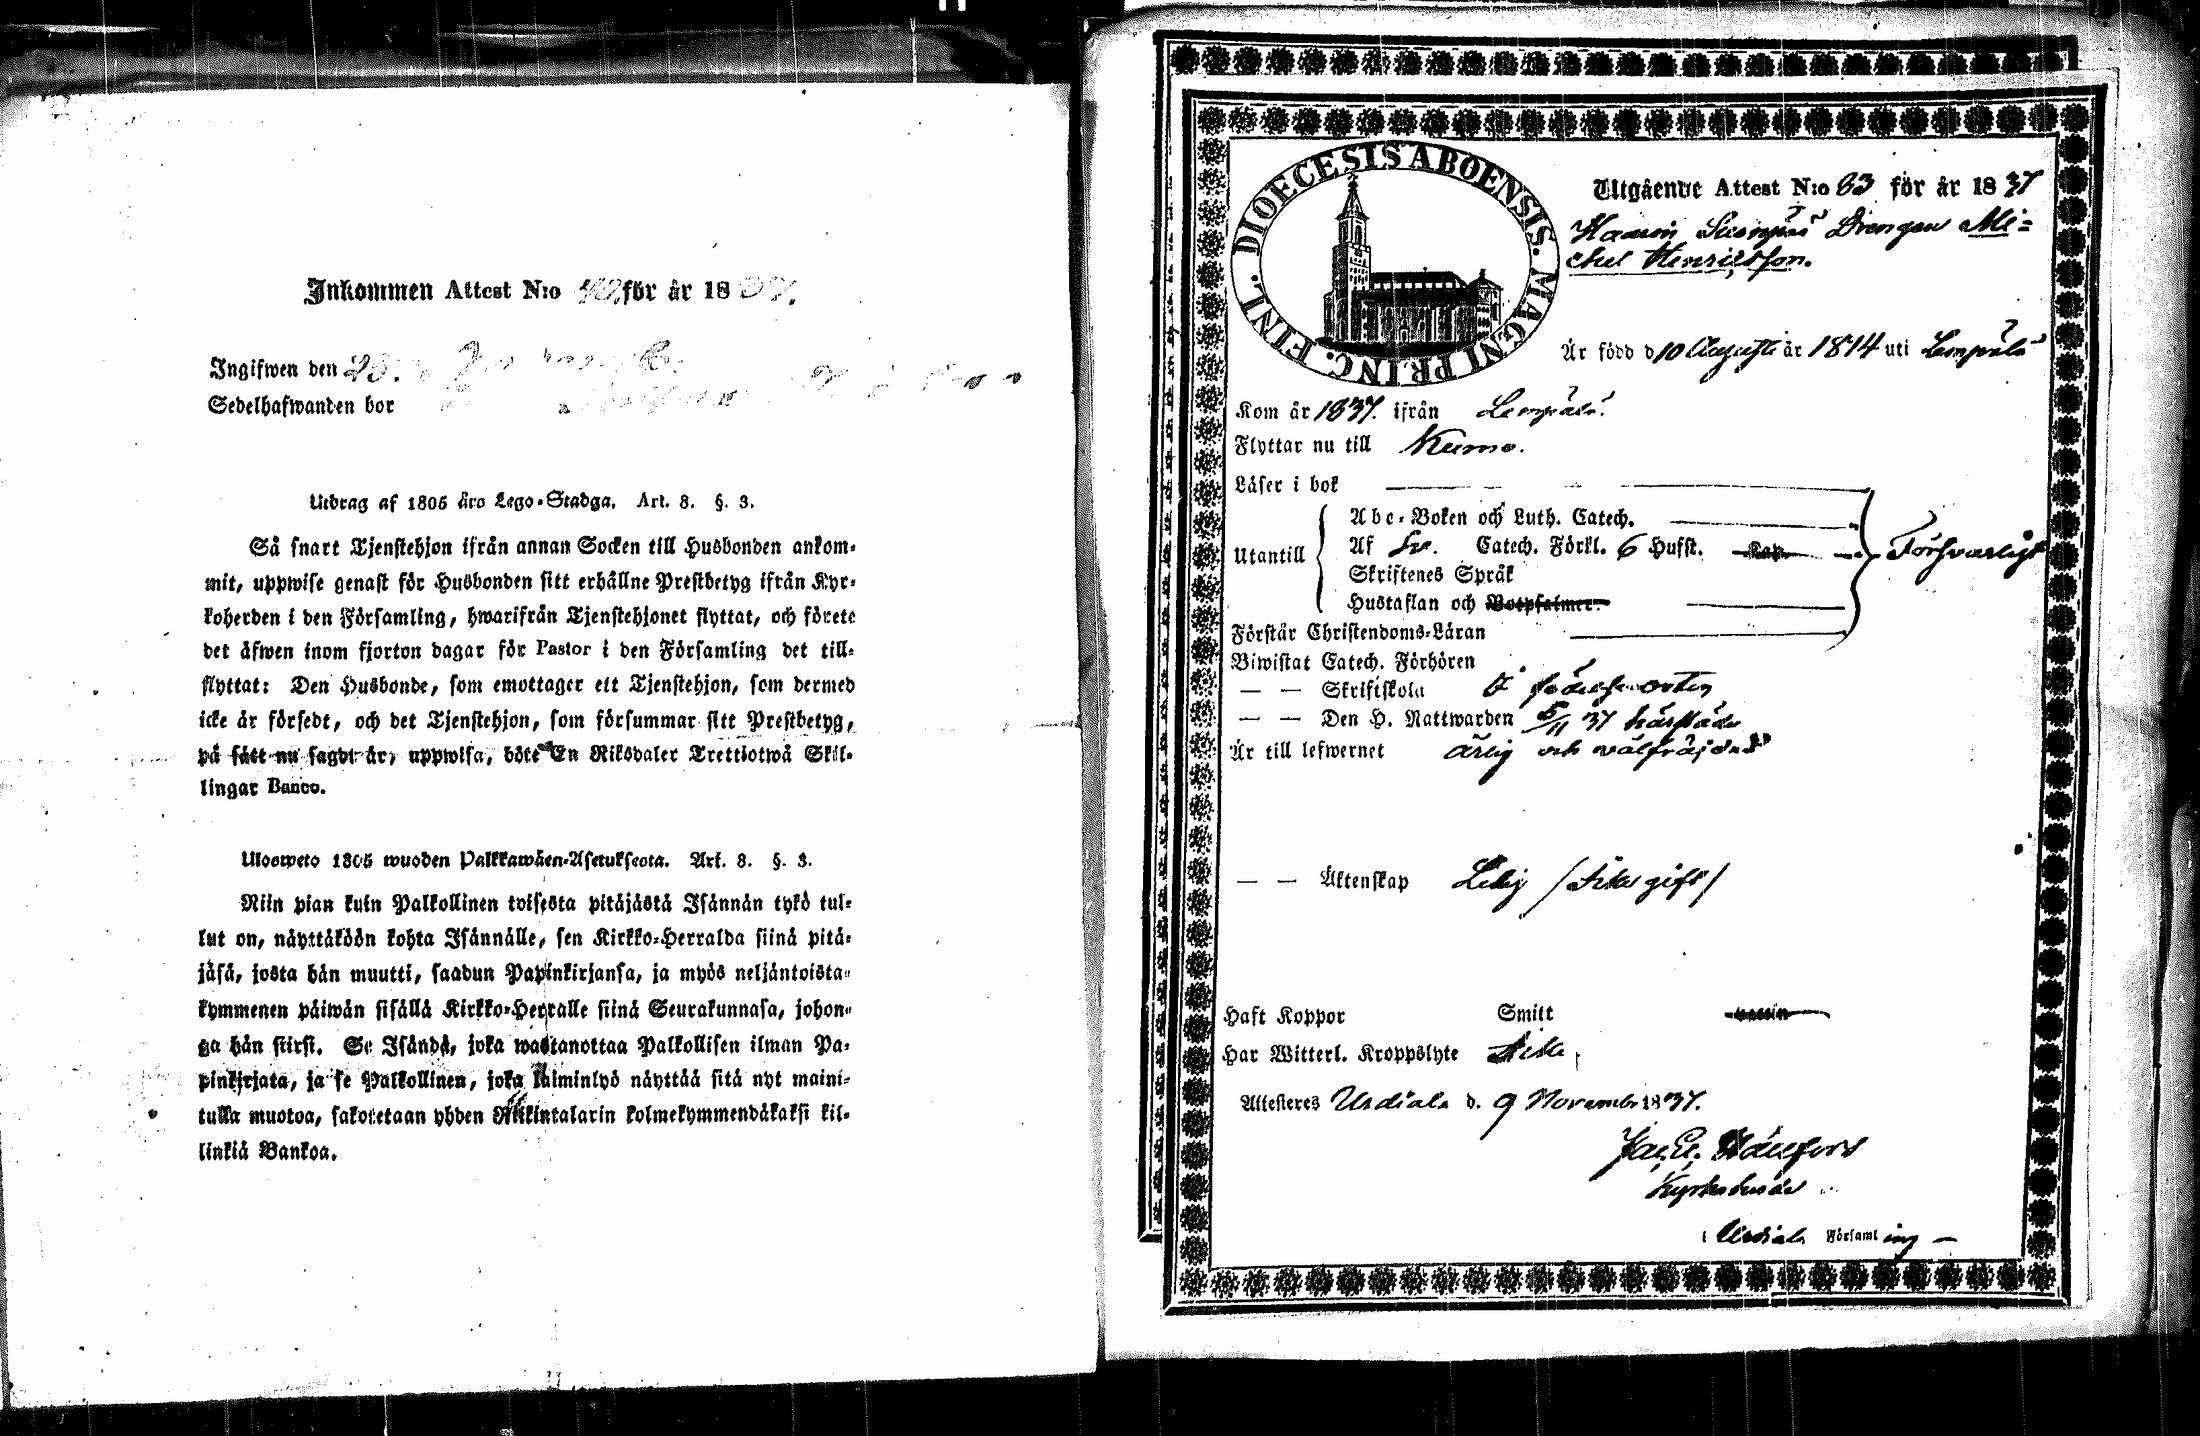 Inkommen Attest N:o för år 1837.
Ingifwen den 23.
Sedelhafwanden bor
Utdrag af 1805 års Lego-Stadga. Art. 8. §. 3.
Så snart Tjenstehjon ifrån annan Socken till Husbonden ankom-
mit, uppwise genast för Husbonden sitt erhållne Prestbetyg ifrån Kyr-
koherden i den Församling, hwarifrån Tjenstehjonet flyttat, och förete
det äfwen inom fjorton dagar för Pastor i den Församling det till-
flyttat: Den Husbonde, som emottager ett Tjenstehjon, som dermed
icke är försedt, och det Tjenstehjon, som försummar sitt Prestbetyg,
på sätt nu sagdt är, uppwisa, böte En Riksdaler Trettiotwå Skil-
lingar Banco.
Ulosweto 1805 wuoden Palkkawäen-Asetuksesta. Art. 8. §. 3.
Niin pian kuin Palkollinen toisesta pitäjästä Isännän tykö tul-
lut on, näyttäköön kohta Isännälle, sen Kirkko-Herralda siinä pitä-
jäsä, josta hän muutti, saadun Papinkirjansa, ja myös neljäntoista-
kymmenen päiwän sisällä Kirkko-Herralle siinä Seurakunnasa, johon-
ga hän siirsi. Se Isändä, joka wastanottaa Palkollisen ilman Pa-
pinkirjata, ja se Palkollinen, joka laiminlyö näyttää sitä nyt maini-
tulla muotoa, sakotetaan yhden Riikintalarin kolmekymmendäkaksi kil-
linkiä Bankoa.
DIOECESIS ABOENSIS. MAGNI PRINC. FINL.
Utgående Attest N:o 83 för år 1837
Drengen Mi=
chel Henricsson.
Är född d 10 Augusti år 1814 uti Lempälä
Kom år 1837. ifrån Lempälä.
Flyttar nu till Kumo.
Läser i bok
Abc-Boken och Luth. Catech.
Utantill Af Sv. Catech. Förkl. 6 Hufst. Kap. Försvarligt
Skriftenes Språk
Hustaflan och Botpsalmer.
Förstår Christendoms-Läran
Biwistat Catech. Förhören
— — Skriftskola I födelseorten
— — Den H. Nattwarden 5/11 37 härstädes
Är till lefwernet ärlig och välfräjdad
— — Äktenskap Ledig /Icke gift/
Haft Koppor Smitt Vaccin
Har Witterl. Kroppslyte Icke
Attesteres Urdiala d. 9 November 1837.
Kyrkoherde
i Urdiala Församling —